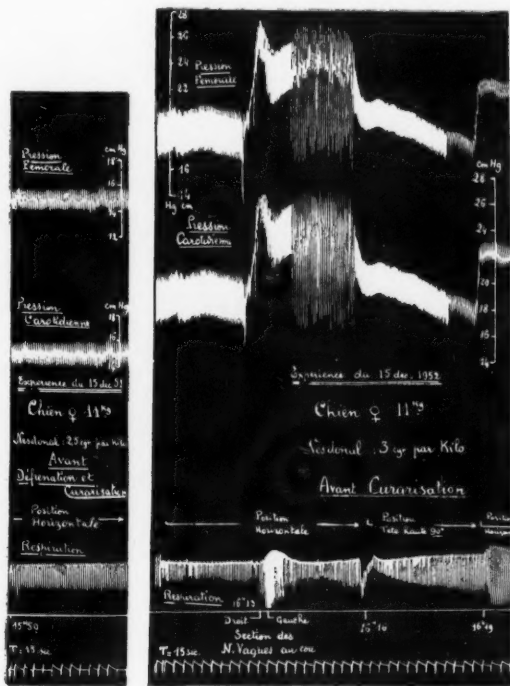 Pression
Fémorale
cm Hg
18
16
14
12
Pression
Carotidienne
cm Hg
18
16
Expérience du 15 déc 52
Chien ♀ 11 Kg
Nesdonal : 25 cgr par Kilo
Avant
Défrénation et
Curarisation
Position
Horizontale
Respiration
15h50
T = 15 sec
28
26
24
22
Pression
Fémorale
16
14
Hg cm
Pression
Carotidienne
cm Hg
28
26
24
20
18
16
14
Expérience du 15 déc. 1952
Chien ♀ 11 Kg
Nesdonal : 3 cgr par Kilo
Avant Curarisation
Position
Horizontale
Position
Tête haute 90°
Position
Respiration
16h13
Droit
Gauche
16h16
16h19
Section des
N. Vagues au cou
T = 15 sec.